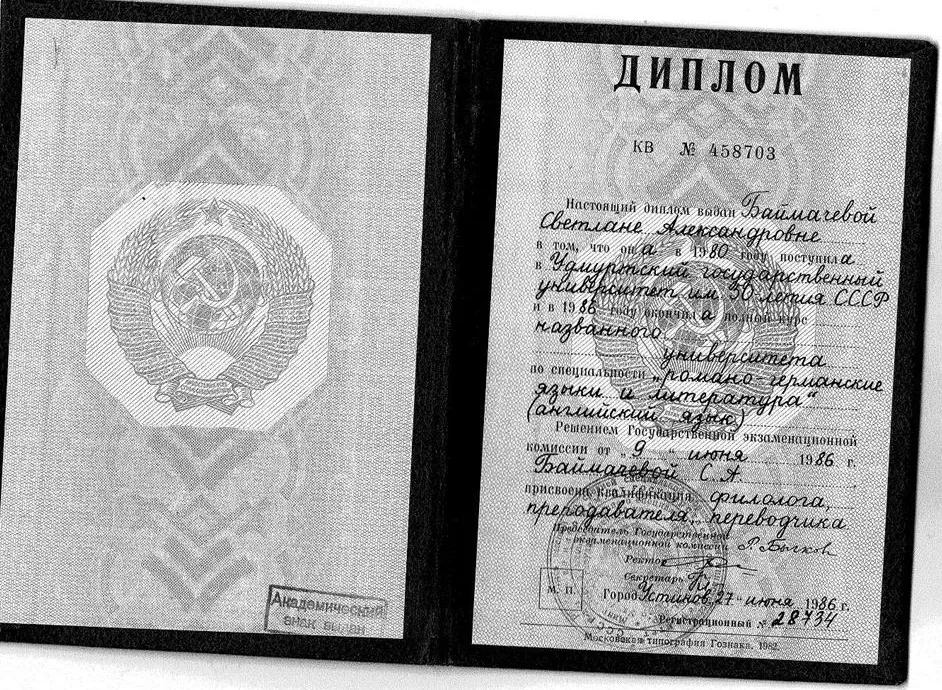 Академический
знак выдан
ДИПЛОМ
КВ № 458703
Настоящий диплом выдан Баймачевой
Светлане Александровне
в том, что она в 1980 году поступила
в Удмуртский государственный
университет им 50-летия СССР
и в 1986 году окончила полный курс
названного
университета
по специальности „романо-германские
языки и литература“
(английский язык)
Решением Государственной экзаменационной
комиссии от „9“ июня 1986 г.
Баймачевой С. А.
присвоена квалификация филолога,
преподавателя, переводчика
Председатель Государственной
экзаменационной комиссии
Ректор
Секретарь
М. П. Город Устинов, 27 июня 1986 г.
Регистрационный № 28734
Московская типография Гознака. 1982.